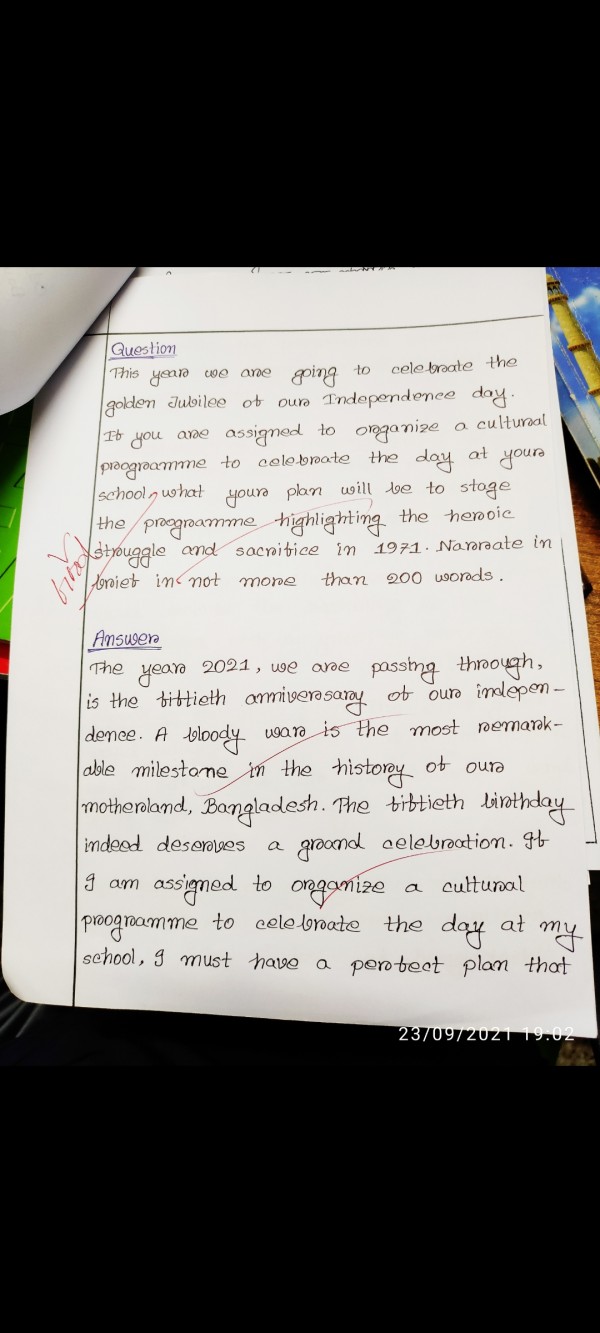 Question
This year we are going to celebrate the
golden Jubilee of our Independence day.
If you are assigned to organize a cultural
programme to celebrate the day at your
school, what your plan will be to stage
the programme highlighting the heroic
struggle and sacrifice in 1971. Narrate in
brief in not more than 200 words.
Answer
The year 2021, we are passing through,
is the fiftieth anniversary of our indepen-
dence. A bloody war is the most remark-
able milestone in the history of our
motherland, Bangladesh. The fiftieth birthday
indeed deserves a grand celebration. If
I am assigned to organize a cultural
programme to celebrate the day at my
school, I must have a perfect plan that
23/09/2021 19:02